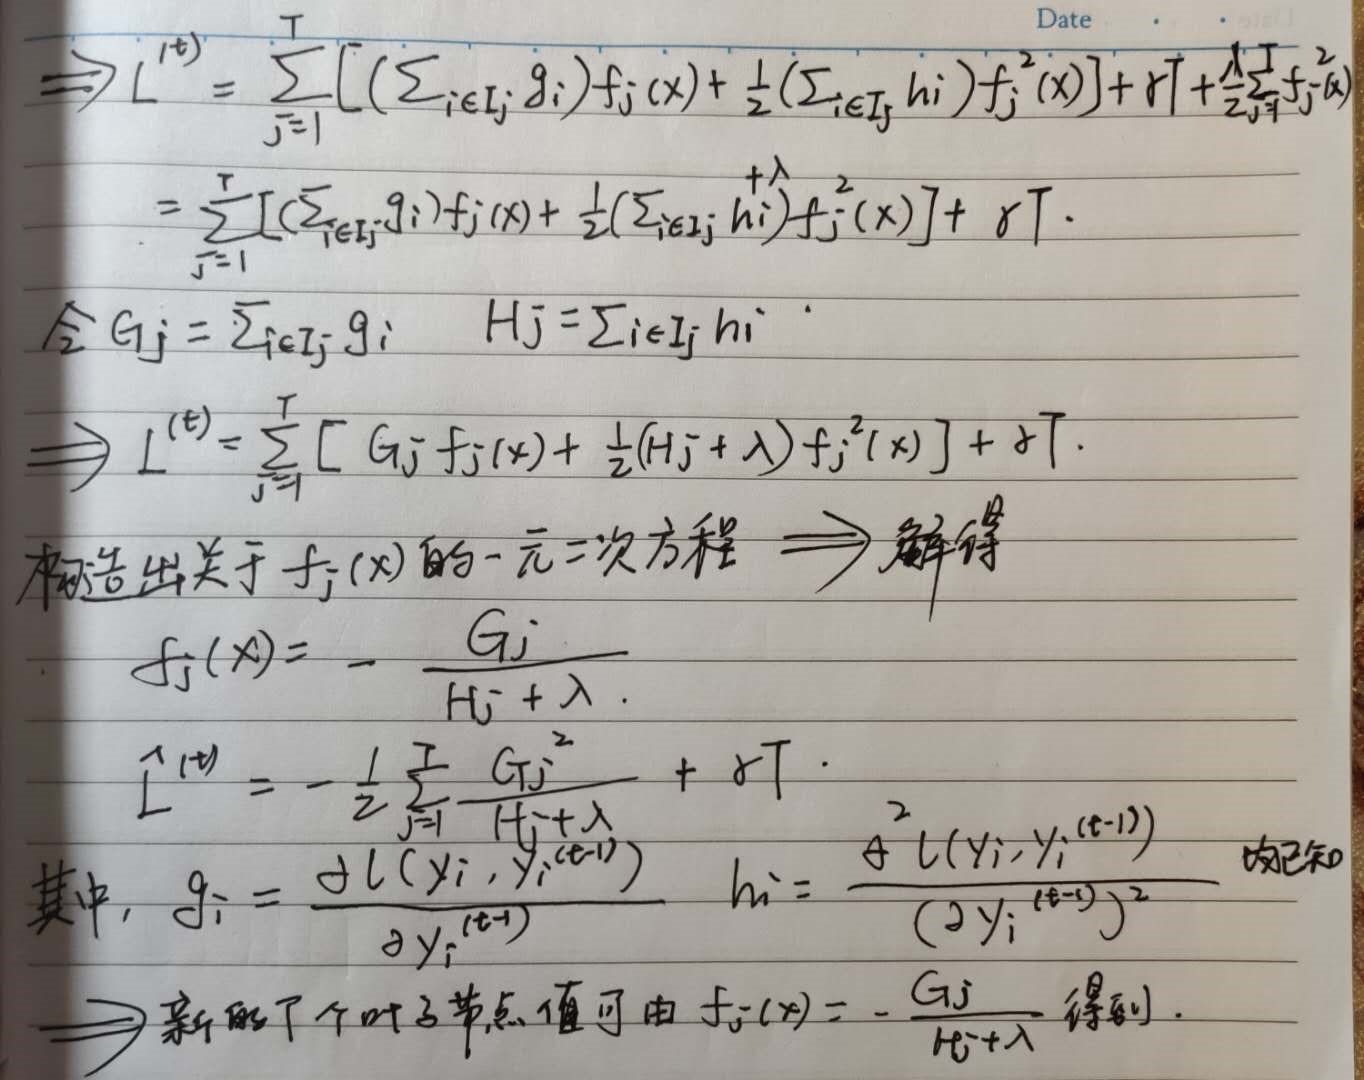 Date
⇒ L^(t) = Σ_{j=1}^{T} [(Σ_{i∈Ij} gi) fj(x) + 1/2 (Σ_{i∈Ij} hi) fj²(x)] + γT + λ/2 Σ_{j=1}^{T} fj²(x)
= Σ_{j=1}^{T} [(Σ_{i∈Ij} gi) fj(x) + 1/2 (Σ_{i∈Ij} hi + λ) fj²(x)] + γT.
令 Gj = Σ_{i∈Ij} gi Hj = Σ_{i∈Ij} hi
⇒ L^(t) = Σ_{j=1}^{T} [Gj fj(x) + 1/2 (Hj + λ) fj²(x)] + γT.
构造出关于 fj(x) 的一元二次方程 ⇒ 解得
fj(x) = - Gj / (Hj + λ).
L̂^(t) = - 1/2 Σ_{j=1}^{T} Gj² / (Hj + λ) + γT.
其中, gi = ∂l(yi, yi^(t-1)) / ∂yi^(t-1) hi = ∂²l(yi, yi^(t-1)) / (∂yi^(t-1))² 均已知
⇒ 新的T个叶子节点值可由 fj(x) = - Gj / (Hj + λ) 得到.